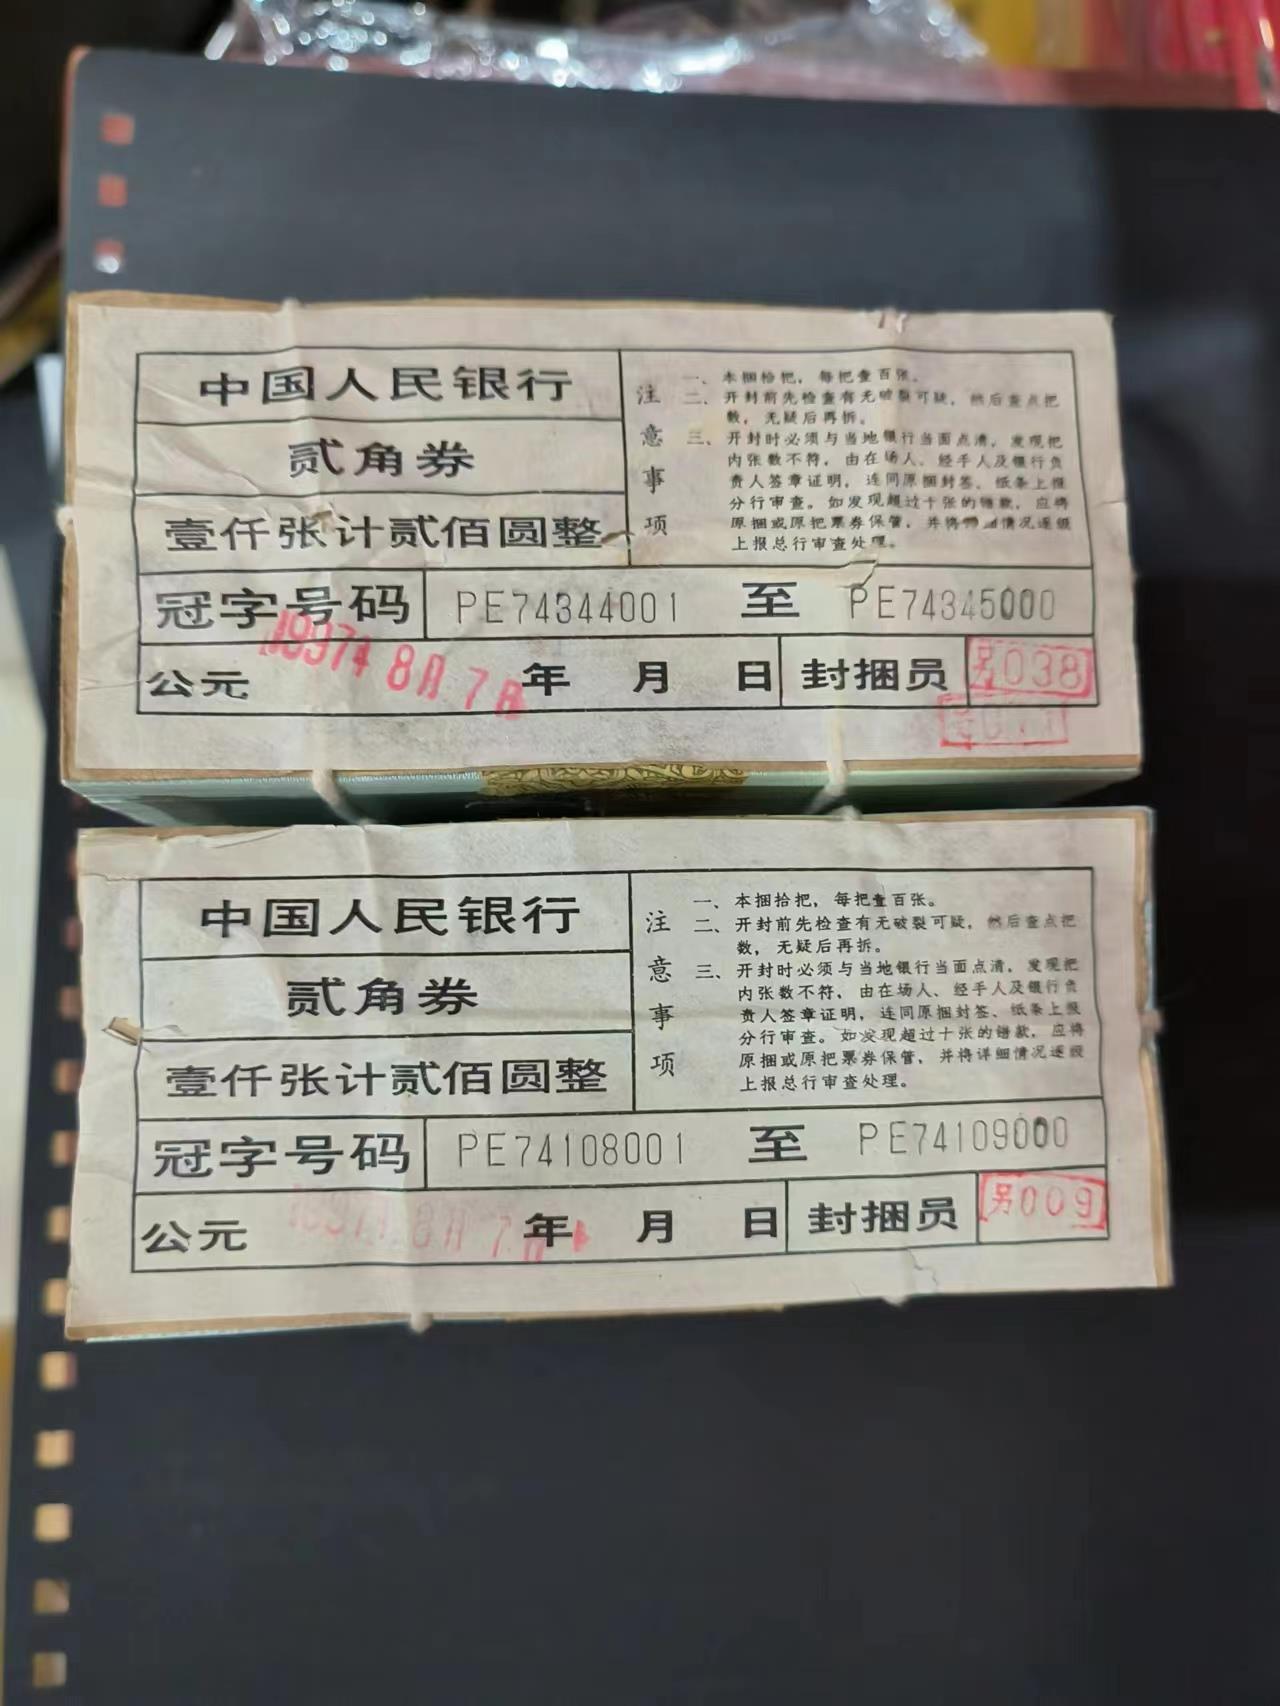 中国人民银行
贰角券
壹仟张计贰佰圆整
注意事项
一、本捆拾把，每把壹百张。
二、开封前先检查有无破裂可疑，然后查点把
数，无疑后再拆。
三、开封时必须与当地银行当面点清，发现把
内张数不符，由在场人、经手人及银行负
责人签章证明，连同原捆封签、纸条上报
分行审查。如发现超过十张的错款，应将
原捆或原把票券保管，并将详细情况逐级
上报总行审查处理。
冠字号码 PE74344001 至 PE74345000
公元 1997年8月7日 年 月 日 封捆员 另038
中国人民银行
贰角券
壹仟张计贰佰圆整
注意事项
一、本捆拾把，每把壹百张。
二、开封前先检查有无破裂可疑，然后查点把
数，无疑后再拆。
三、开封时必须与当地银行当面点清，发现把
内张数不符，由在场人、经手人及银行负
责人签章证明，连同原捆封签、纸条上报
分行审查。如发现超过十张的错款，应将
原捆或原把票券保管，并将详细情况逐级
上报总行审查处理。
冠字号码 PE74108001 至 PE74109000
公元 1997年8月7日 年 月 日 封捆员 另009